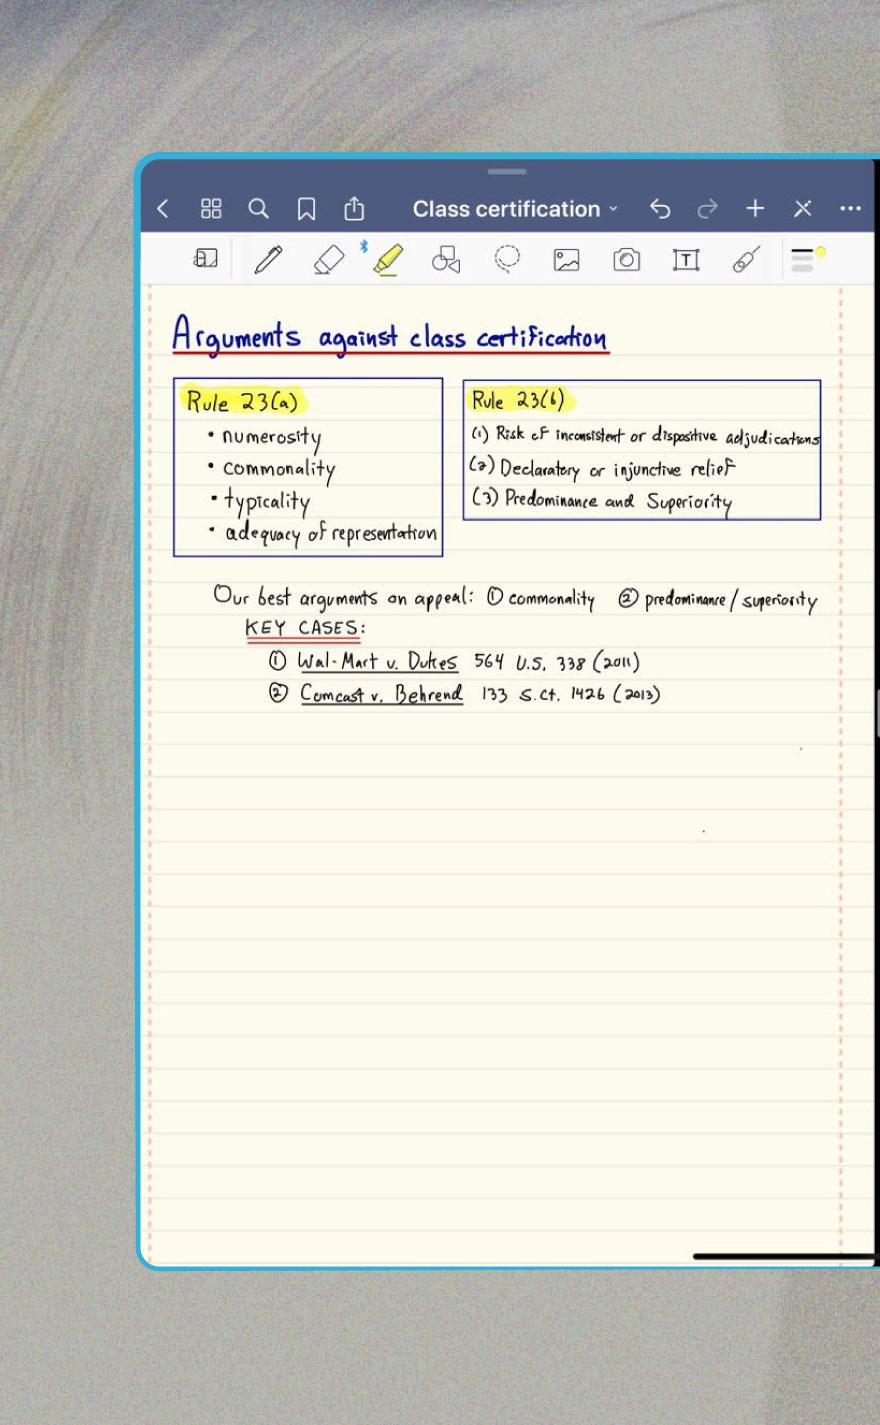 Class certification
T
Arguments against class certification
Rule 23(a)
• numerosity
• commonality
• typicality
• adequacy of representation
Rule 23(b)
(1) Risk of inconsistent or dispositive adjudications
(2) Declaratory or injunctive relief
(3) Predominance and Superiority
Our best arguments on appeal: ① commonality ② predominance/superiority
KEY CASES:
① Wal-Mart v. Dukes 564 U.S. 338 (2011)
② Comcast v. Behrend 133 S.Ct. 1426 (2013)